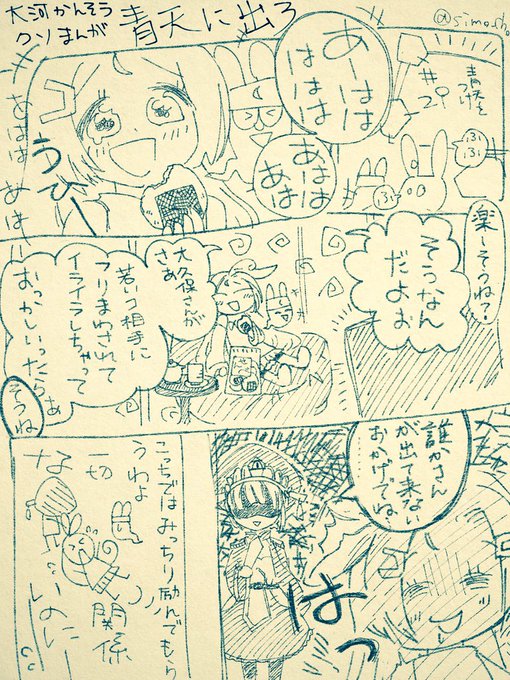 大河かんそう
クソまんが
青天に出ろ
@simosho
あーはは
ははは
青天を
つけ
#29
ふふ
ふふ
あはは
あは
うひー
あはは あはー
楽しそうね?
そうなん
だよお
大久保さんが
さあ
若いコ相手に
フリまわされて
イライラしちゃって
おっかしいったらあ
そうね
誰かさん
が出て来ない
おかげでね
…
はっ
こっちではみっちり励んでもら
うわよ
一切
関係
ないのに…